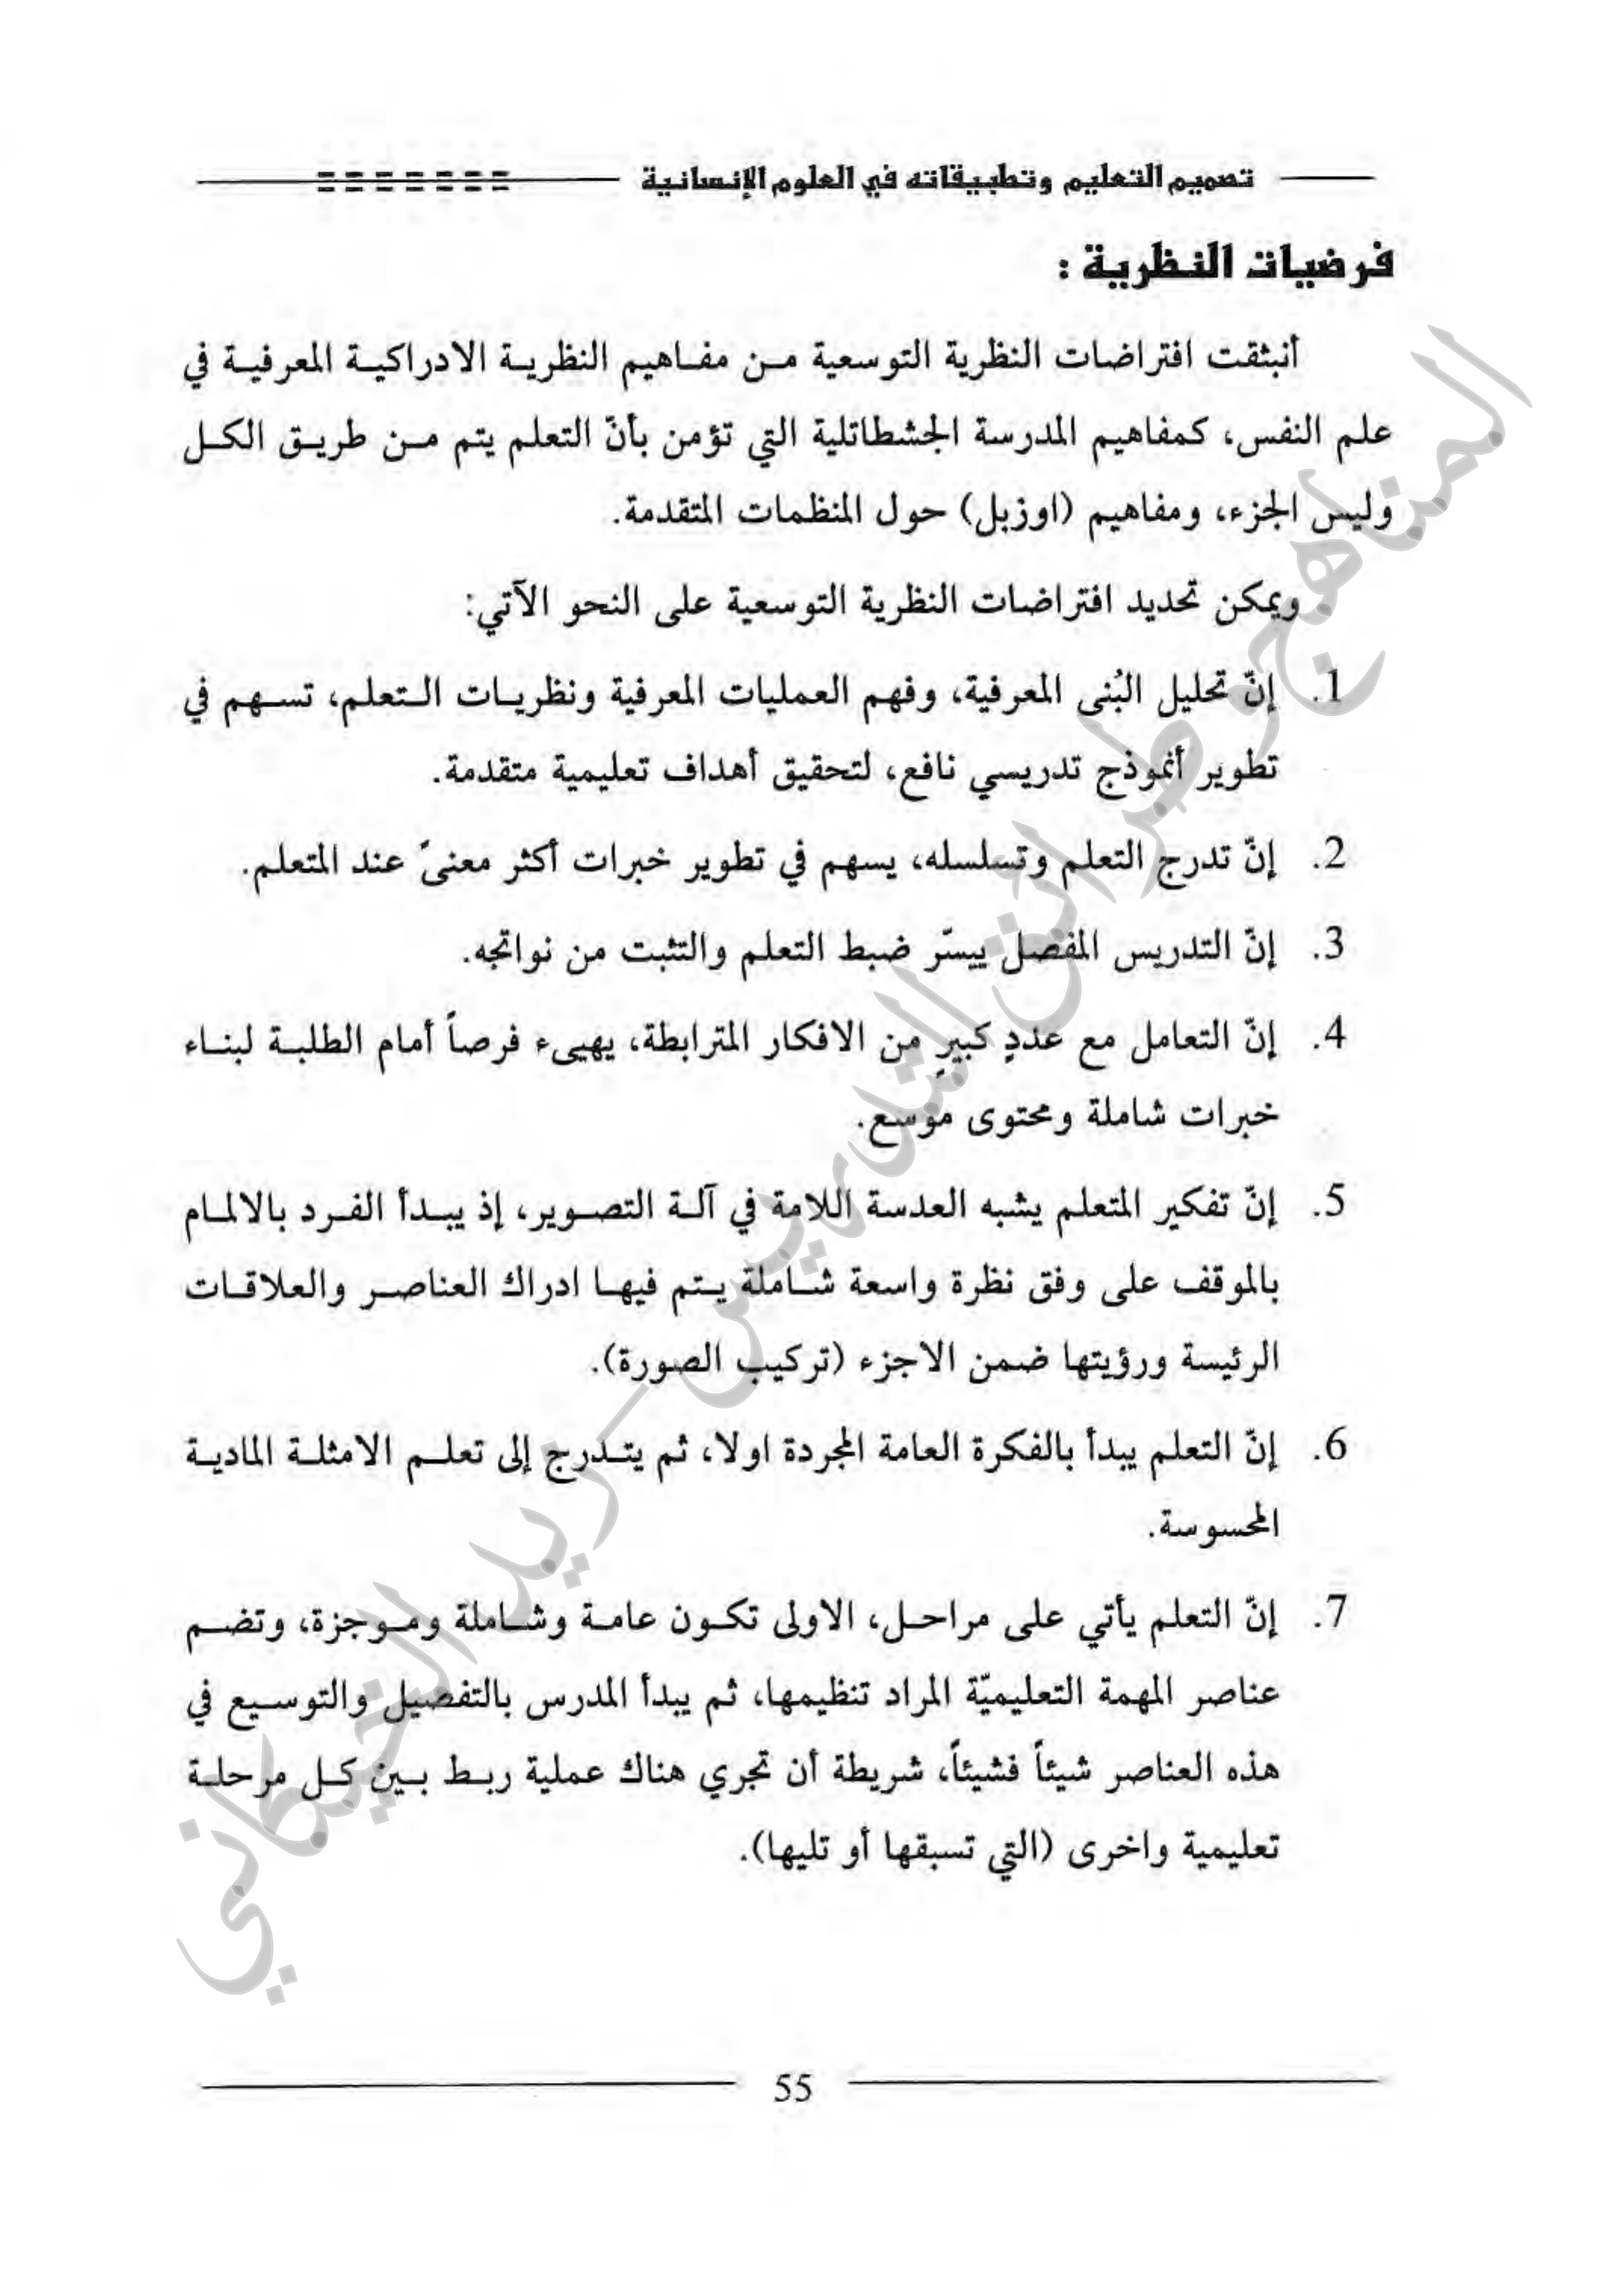 تصميم التعليم وتطبيقاته في العلوم الإنسانية
فرضيات النظرية :
أنبثقت افتراضات النظرية التوسعية من مفاهيم النظرية الادراكية المعرفية في
علم النفس، كمفاهيم المدرسة الجشطاتلية التي تؤمن بأنّ التعلم يتم من طريق الكل
وليس الجزء، ومفاهيم (اوزبل) حول المنظمات المتقدمة.
ويمكن تحديد افتراضات النظرية التوسعية على النحو الآتي:
1. إنّ تحليل البُنى المعرفية، وفهم العمليات المعرفية ونظريات التعلم، تسهم في
تطوير أنموذج تدريسي نافع، لتحقيق أهداف تعليمية متقدمة.
2. إنّ تدرج التعلم وتسلسله، يسهم في تطوير خبرات أكثر معنىً عند المتعلم.
3. إنّ التدريس المفصل ييسّر ضبط التعلم والتثبت من نواتجه.
4. إنّ التعامل مع عددٍ كبيرٍ من الافكار المترابطة، يهيىء فرصاً أمام الطلبة لبناء
خبرات شاملة ومحتوى موسع.
5. إنّ تفكير المتعلم يشبه العدسة اللامة في آلة التصوير، إذ يبدأ الفرد بالالمام
بالموقف على وفق نظرة واسعة شاملة يتم فيها ادراك العناصر والعلاقات
الرئيسة ورؤيتها ضمن الاجزء (تركيب الصورة).
6. إنّ التعلم يبدأ بالفكرة العامة المجردة اولا، ثم يتدرج إلى تعلم الامثلة المادية
المحسوسة.
7. إنّ التعلم يأتي على مراحل، الاولى تكون عامة وشاملة وموجزة، وتضم
عناصر المهمة التعليميّة المراد تنظيمها، ثم يبدأ المدرس بالتفصيل والتوسيع في
هذه العناصر شيئاً فشيئاً، شريطة أن تجري هناك عملية ربط بين كل مرحلة
تعليمية واخرى (التي تسبقها أو تليها).
55
المناهج وطرائق التدريس - زيد الخيكاني